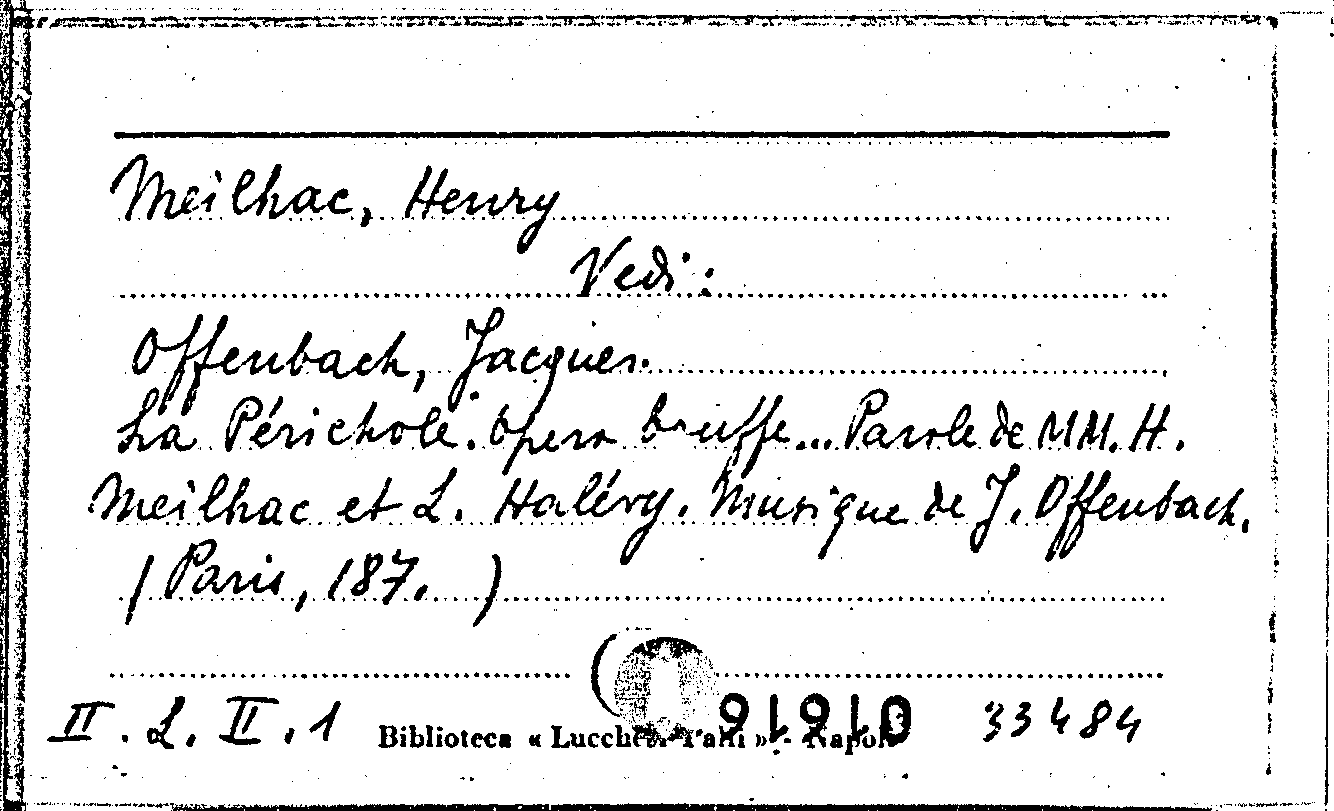 Meilhac, Henry
Vedi:
Offenbach, Jacques.
La Périchole. Opera bouffe... Parole de MM. H.
Meilhac et L. Halévy. Musique de J. Offenbach.
(Paris, 187. )
II. L. II. 1 Biblioteca « Lucchesi Palli » - Napoli 33484